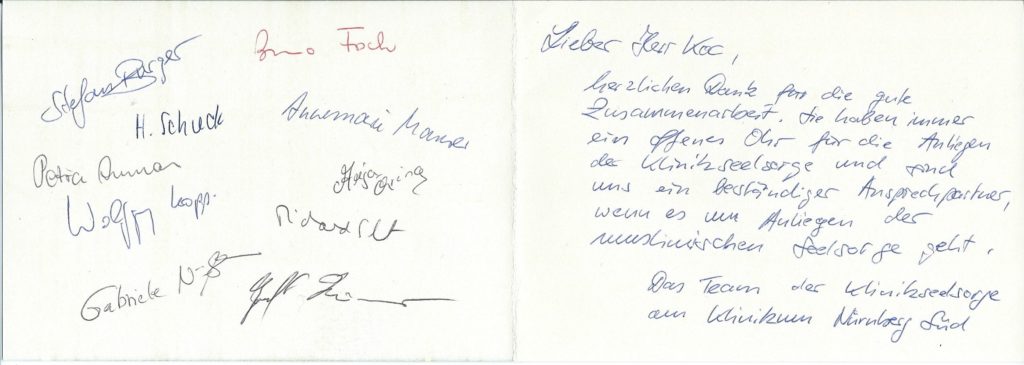 Stefans Burger
Bruno Foch
H. Schuck
Annemarie
Petra
Wolfgang Kopp.
Richard
Gabriele
Lieber Herr Koc,
herzlichen Dank für die gute
Zusammenarbeit. Sie haben immer
ein offenes Ohr für die Anliegen
der Klinikseelsorge und sind
uns ein beständiger Ansprechpartner,
wenn es um Anliegen der
muslimischen Seelsorge geht.
Das Team der Klinikseelsorge
am Klinikum Nürnberg Süd